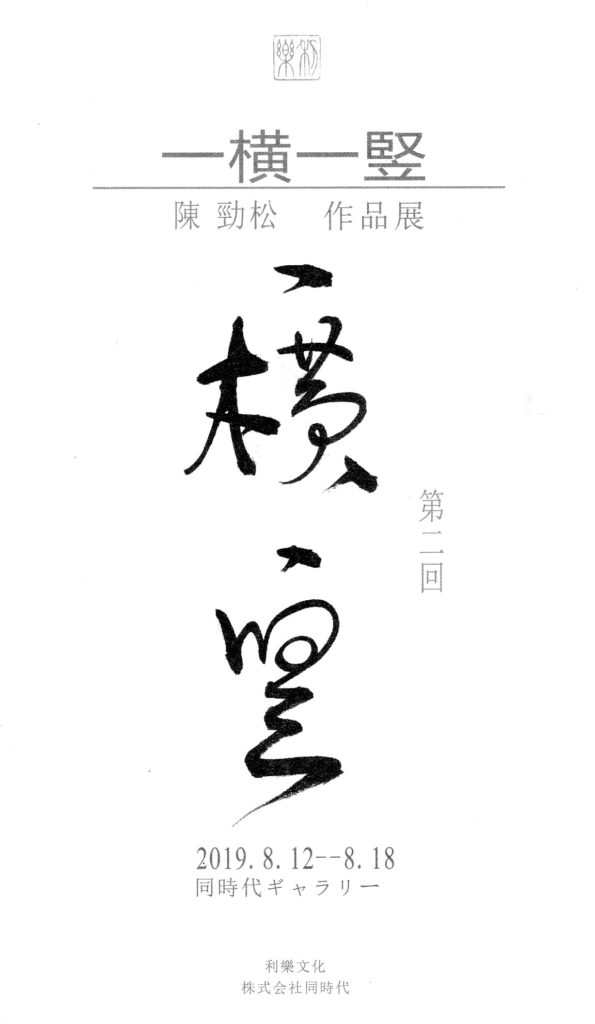 利樂
一橫一竪
陳 勁松 作品展
一橫
一竪
第二回
2019. 8. 12--8. 18
同時代ギャラリー
利樂文化
株式会社同時代